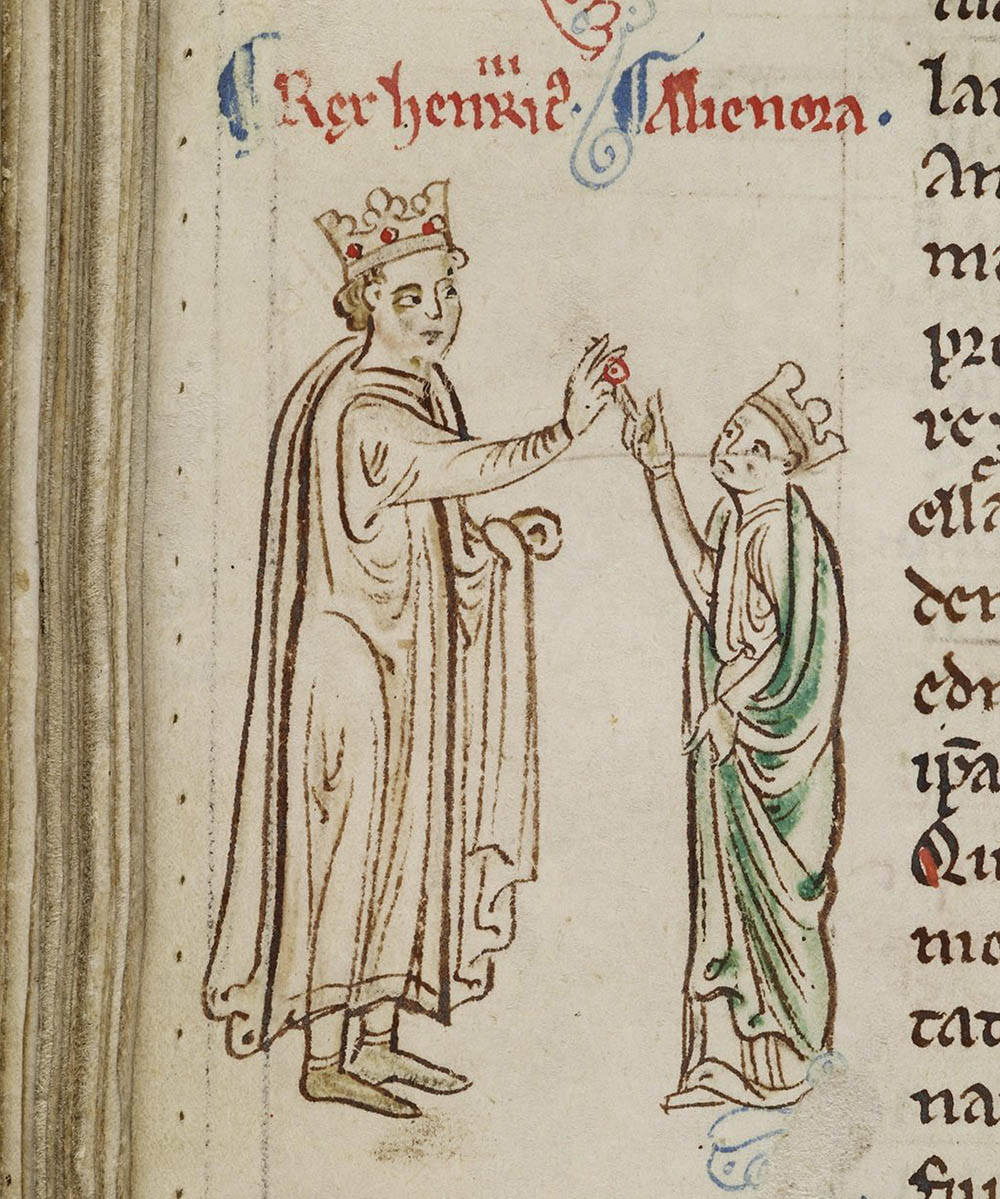 Rex henric⁹ iii · Alienora ·
la
An
ma
pri
rex
ella
den
edu
ip̄a
Qu
mo
tat
na